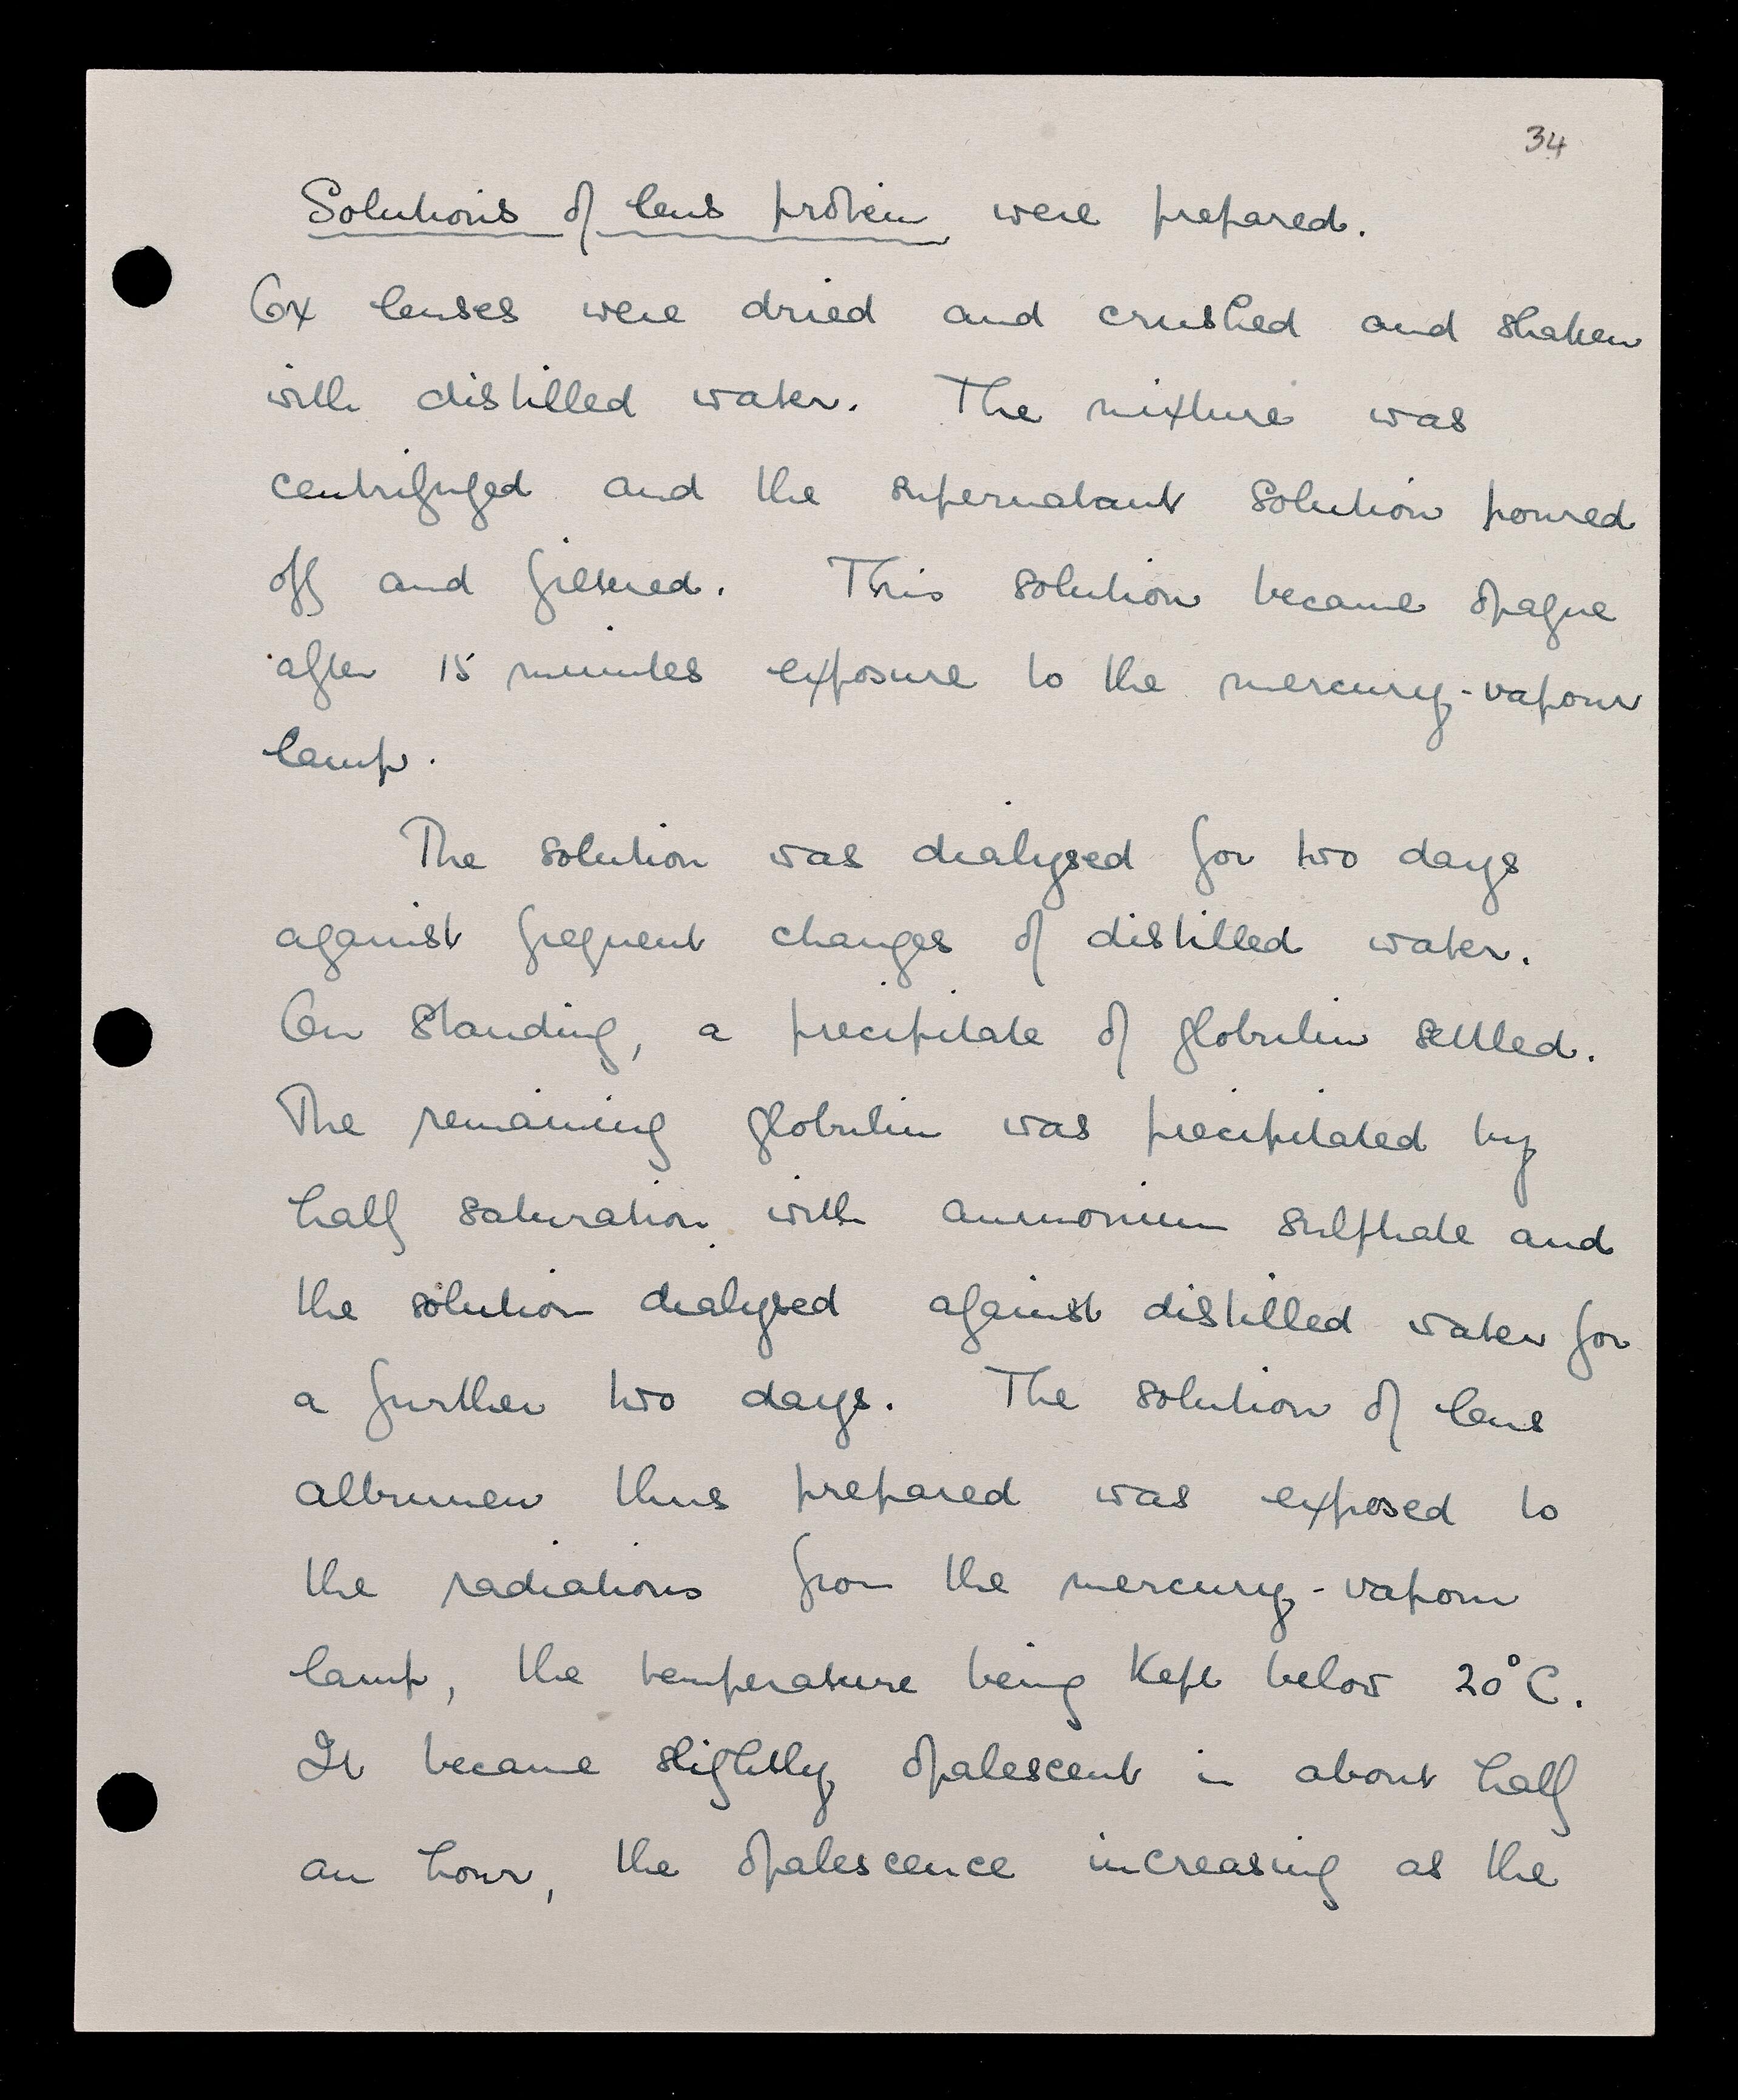 34
Solutions of lens protein were prepared.
Ox lenses were dried and crushed and shaken
with distilled water. The mixture was
centrifuged and the supernatant solution poured
off and filtered. This solution became opaque
after 15 minutes exposure to the mercury-vapour
lamp.
The solution was dialysed for two days
against frequent changes of distilled water.
On standing, a precipitate of globulin settled.
The remaining globulin was precipitated by
half saturation with ammonium sulphate and
the solution dialysed against distilled water for
a further two days. The solution of lens
albumen thus prepared was exposed to
the radiations from the mercury-vapour
lamp, the temperature being kept below 20°C.
It became slightly opalescent in about half
an hour, the opalescence increasing as the